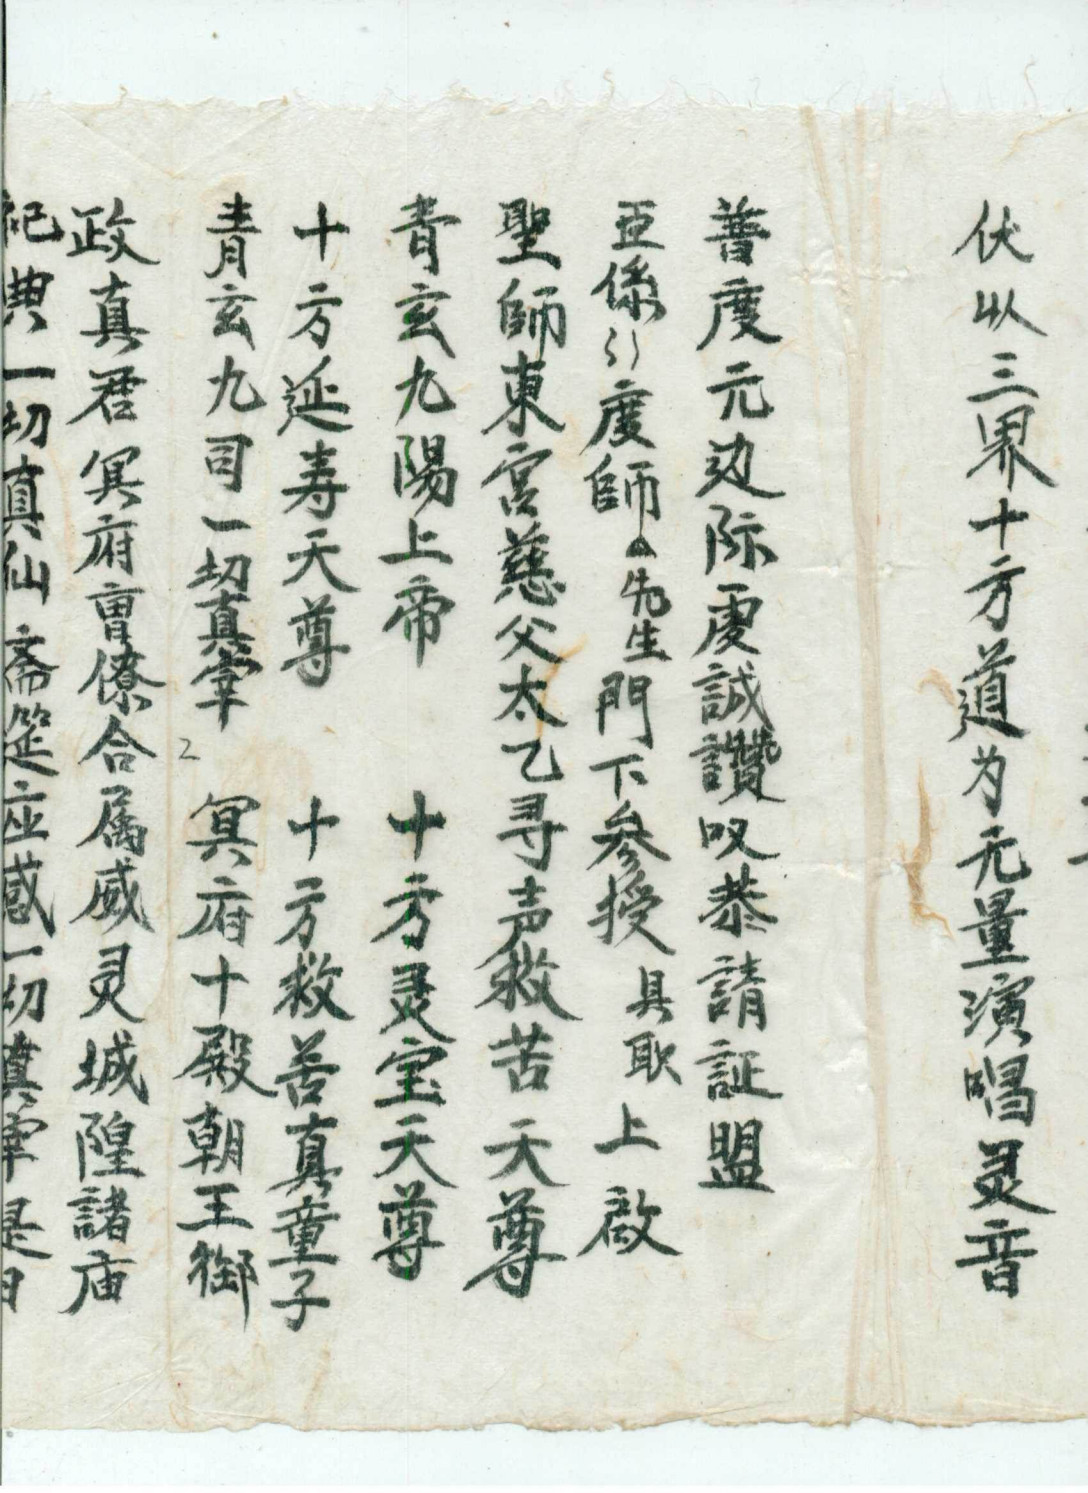 伏以三界十方道为元量演唱灵音
普度元边际虔誠讃叹恭請証盟
亚係引度師 先生門下参授 具耿 上啟
聖師東宮慈父太乙寻声救苦天尊
青玄九陽上帝 十方灵宝天尊
十方延寿天尊 十方救苦真童子
青玄九司一切真宰 冥府十殿朝王御
政真君冥府曺僚合属威灵城隍諸庙
祀典一切真仙斋筵座感一切真宰是日